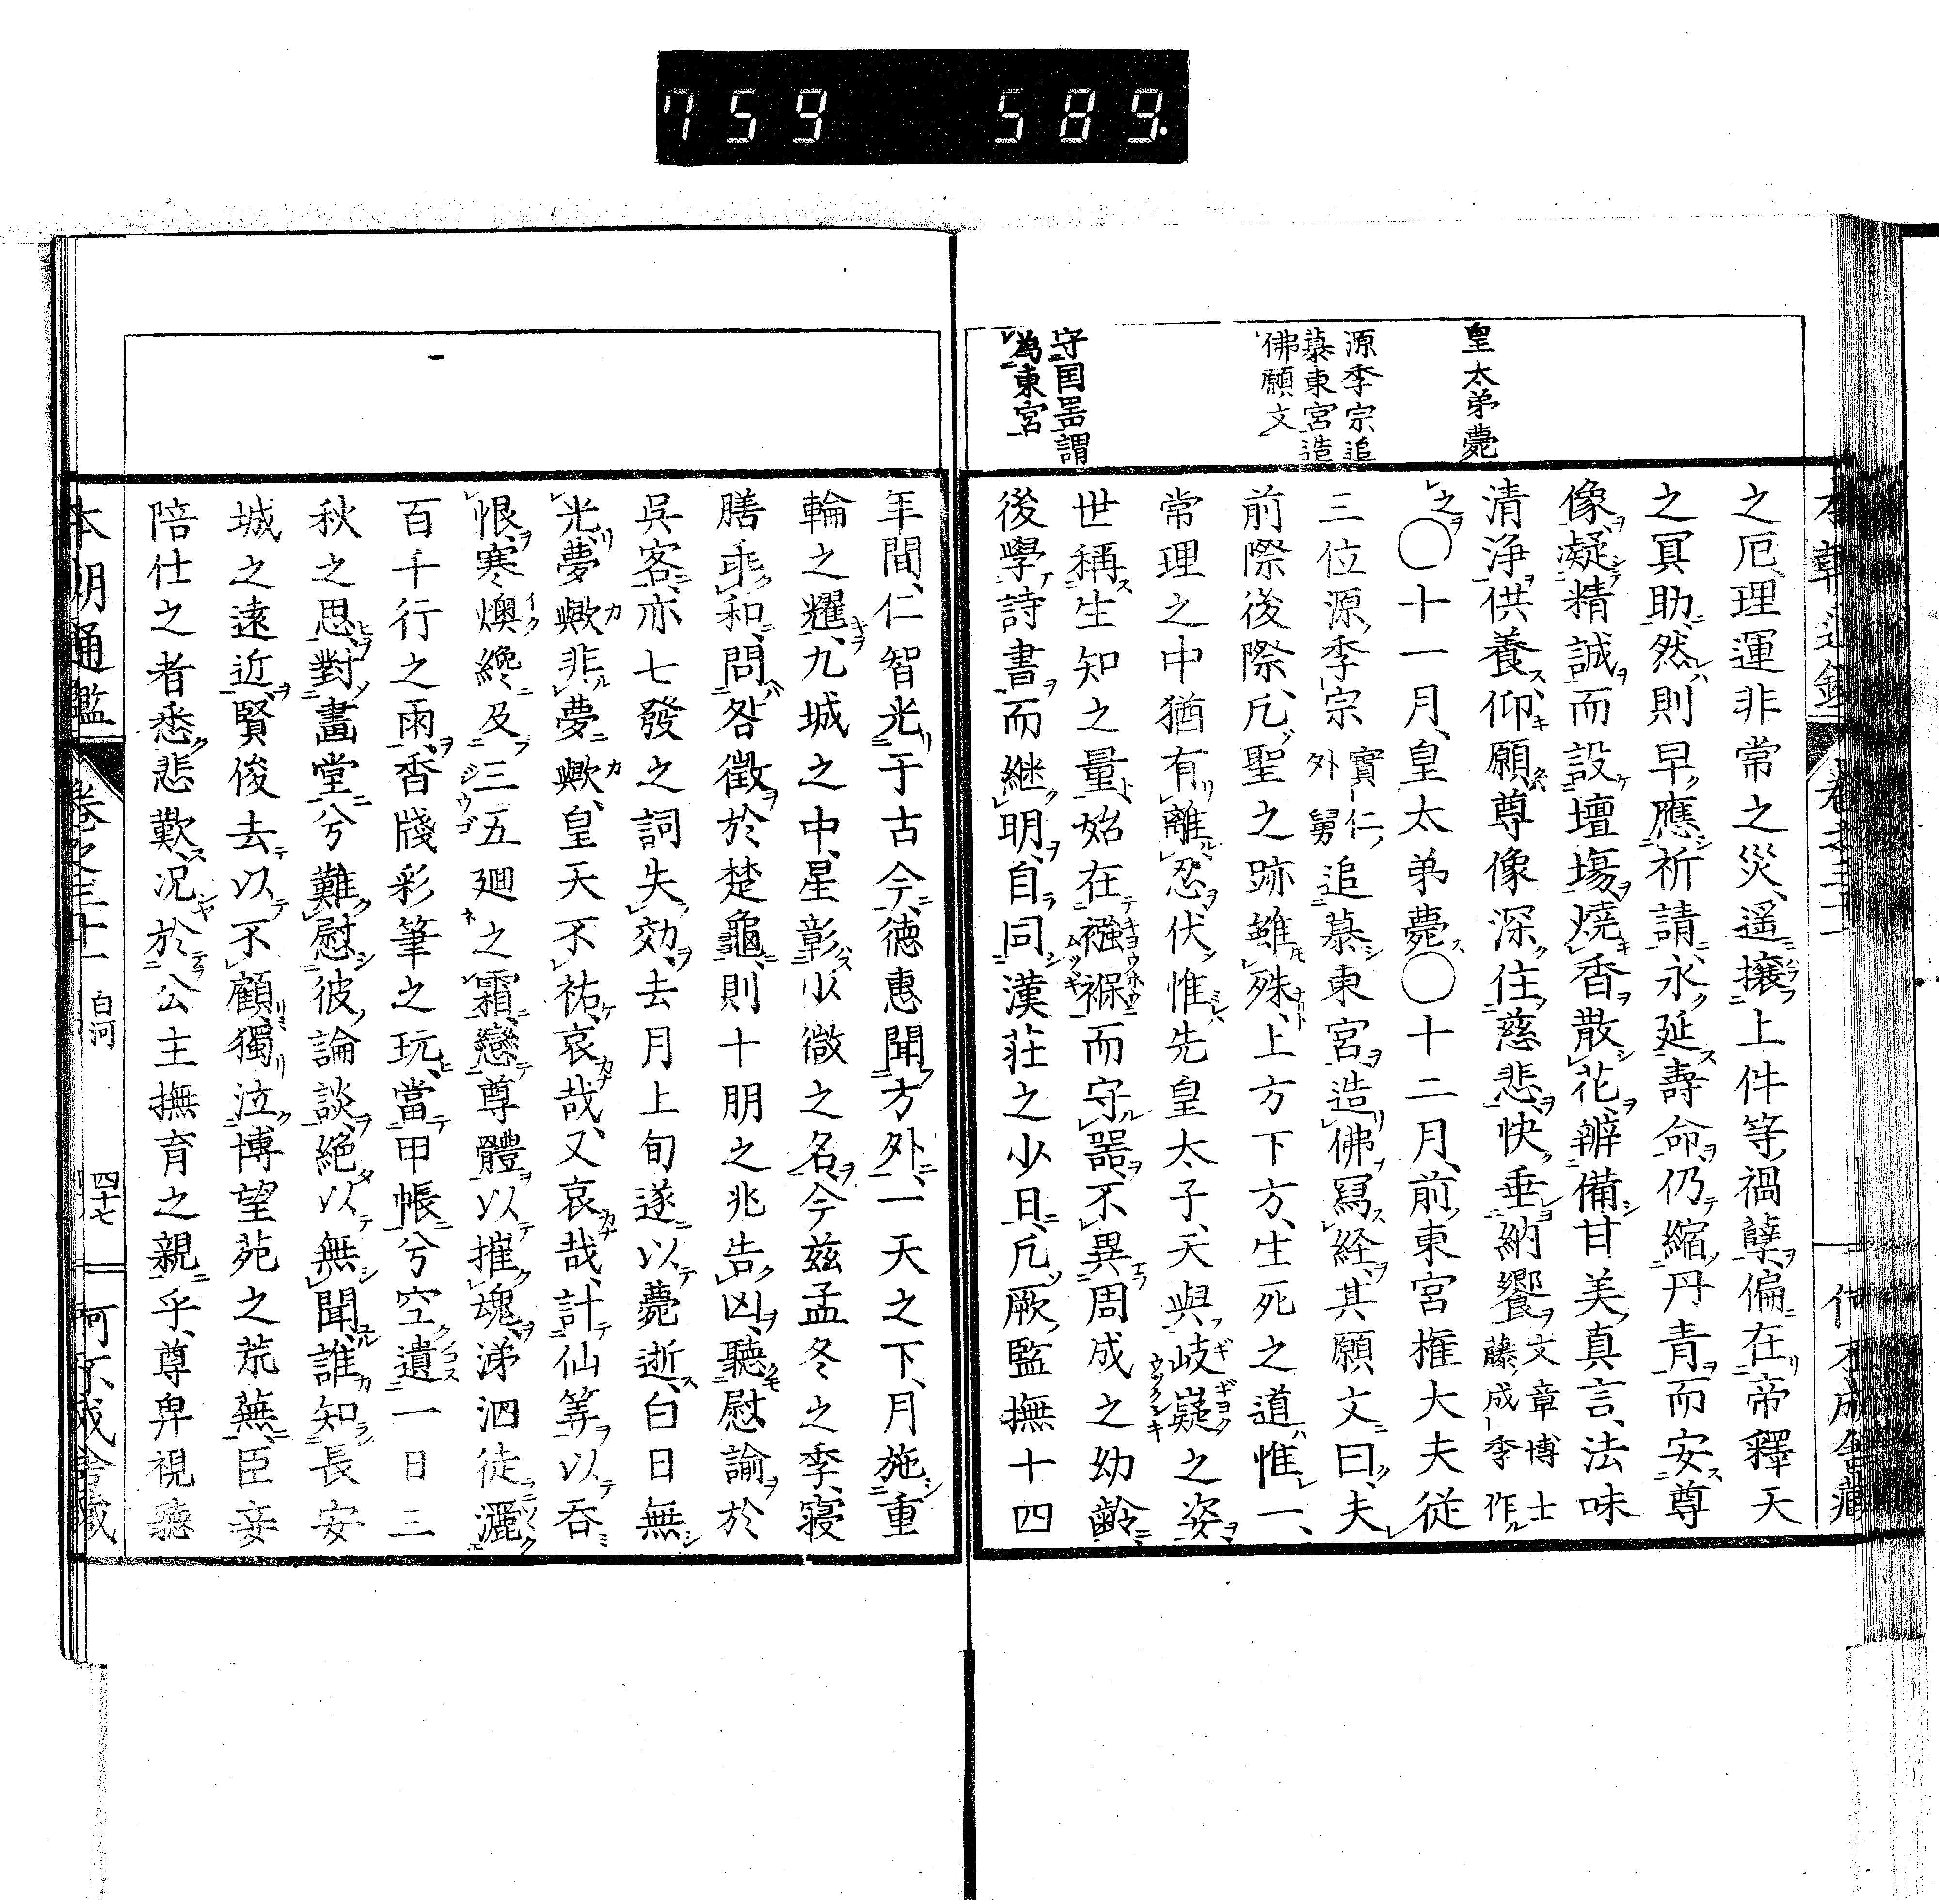 759 589.
皇太弟薨
源季宗追
慕東宮造
佛願文
守国噐謂
為東宮
之厄理運非常之災、遥攘上件等、禍孽、偏在帝釋天
之冥助、然則早應祈請、永延壽命、仍縮丹青而安尊
像、凝精誠而設壇場、燒香散花、辨備甘美、真言、法味
清浄供養、仰願尊像深住慈悲、快垂納饗、文章博士藤成季作
之〇十一月、皇太弟薨〇十二月、前東宮権大夫従
三位源季宗實仁外舅追慕東宮、造佛寫経、其願文曰、夫
前際後際、凡聖之跡雖殊、上方下方、生死之道惟一、
常理之中猶有離忍、伏惟先皇太子、天與岐嶷之姿、
世稱生知之量、始在襁褓而守噐、不異周成之幼齡、
後學詩書、而継明、自同漢荘之少日、凡厥監撫十四
年間、仁智光于古今、徳惠聞方外、一天之下、月施重
輪之耀、九城之中、星彰少微之名、今兹孟冬之季、寝
膳乖和、問咎徴於楚龜、則十朋之兆告凶、聽慰諭於
呉客、亦七發之詞失効、去月上旬遂以薨逝、白日無
光、夢歟非夢歟、皇天不祐、哀哉、又哀哉、計仙筭以呑
恨、寒燠纔及三五廻之霜、戀尊體以摧魂、涕泗徒灑
百千行之雨、香牋彩筆之玩、當甲帳兮空遺一日三
秋之思、對畫堂兮難慰彼論談、絶以無聞、誰知長安
城之遠近、賢俊去以不顧、獨泣博望苑之荒蕪、臣妾
陪仕之者悉悲歎、况於公主撫育之親乎、尊卑視聽
本朝通鑑 巻之三十一 白河 四十七